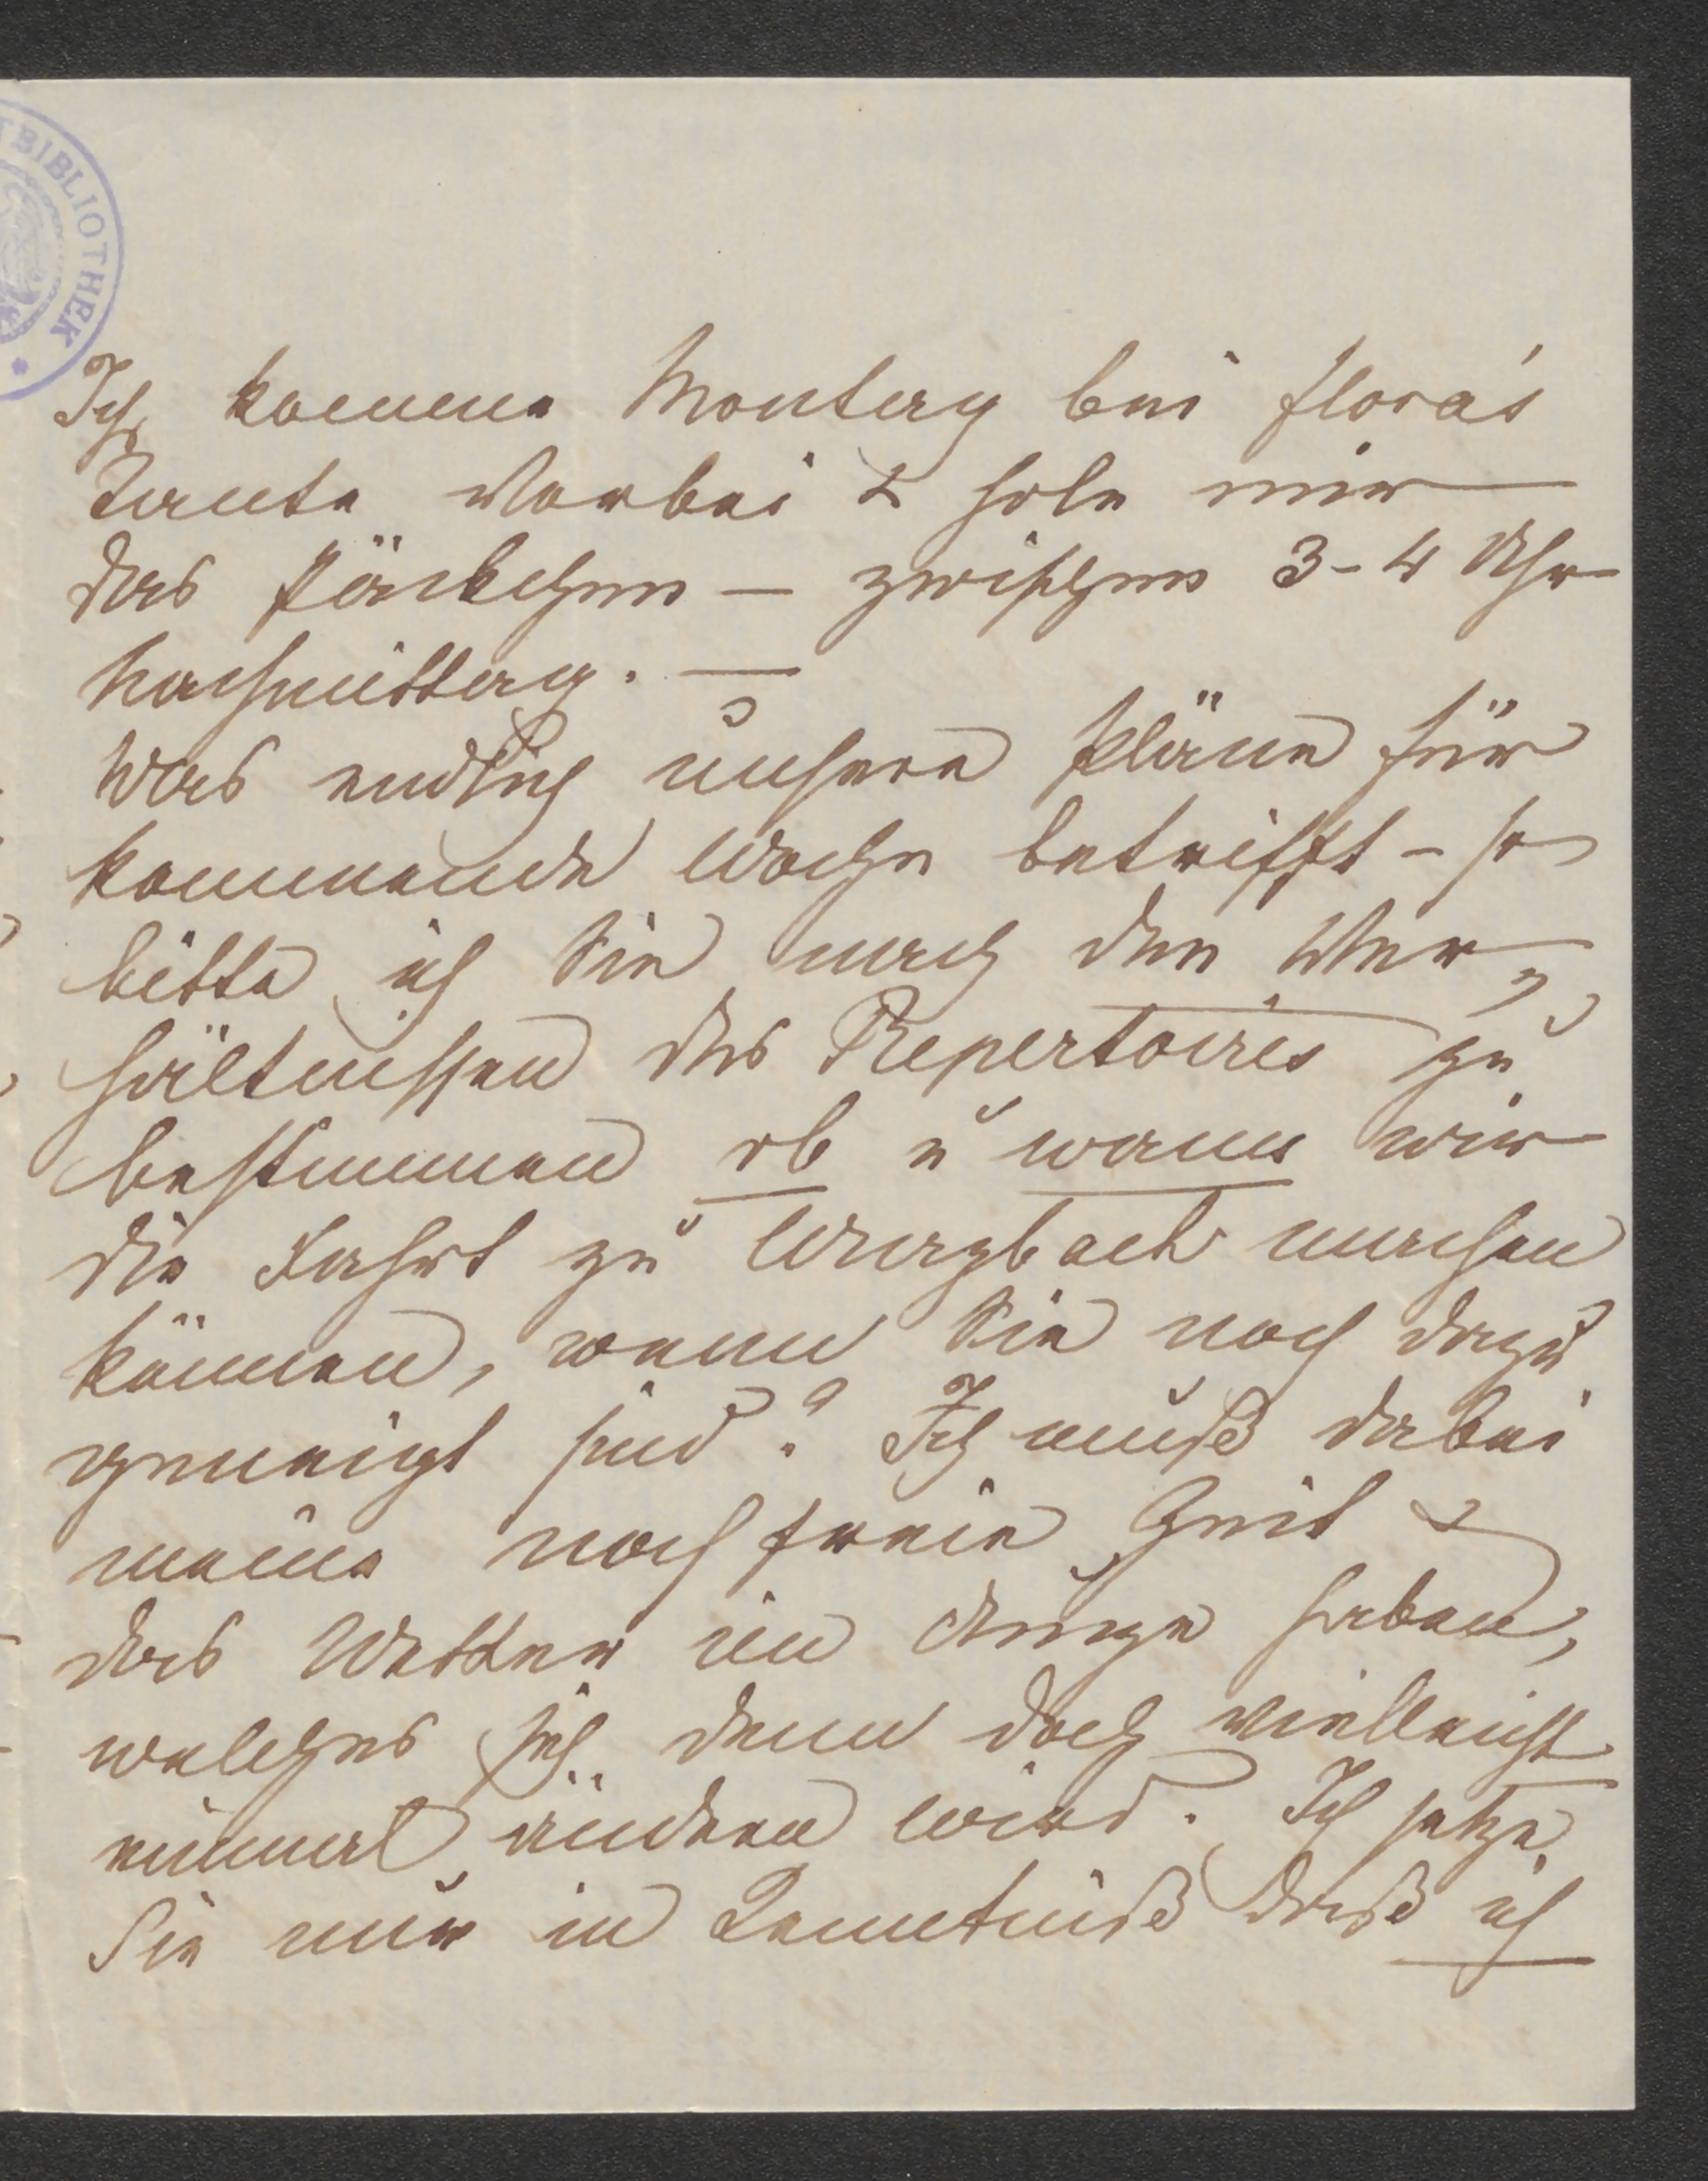 BIBLIOTHEK
Ich komme Montag bei Flora's
Tante vorbei & hole mir
das Päckchen – zwischen 3–4 Uhr
Nachmittag. —
Was endlich unsere Pläne für
kommende Woche betrifft – so
bitte ich Sie nach den Ver-
hältnissen des Repertoires zu
bestimmen ob u wann wir
die Fahrt zu Wurzbach machen
können, wenn Sie noch dazu
geneigt sind? Ich muß dabei
meine noch freie Zeit &
das Wetter im Auge haben,
welches sich denn doch vielleicht
einmal ändern wird. Ich setze
Sie nur in Kenntniß daß ich